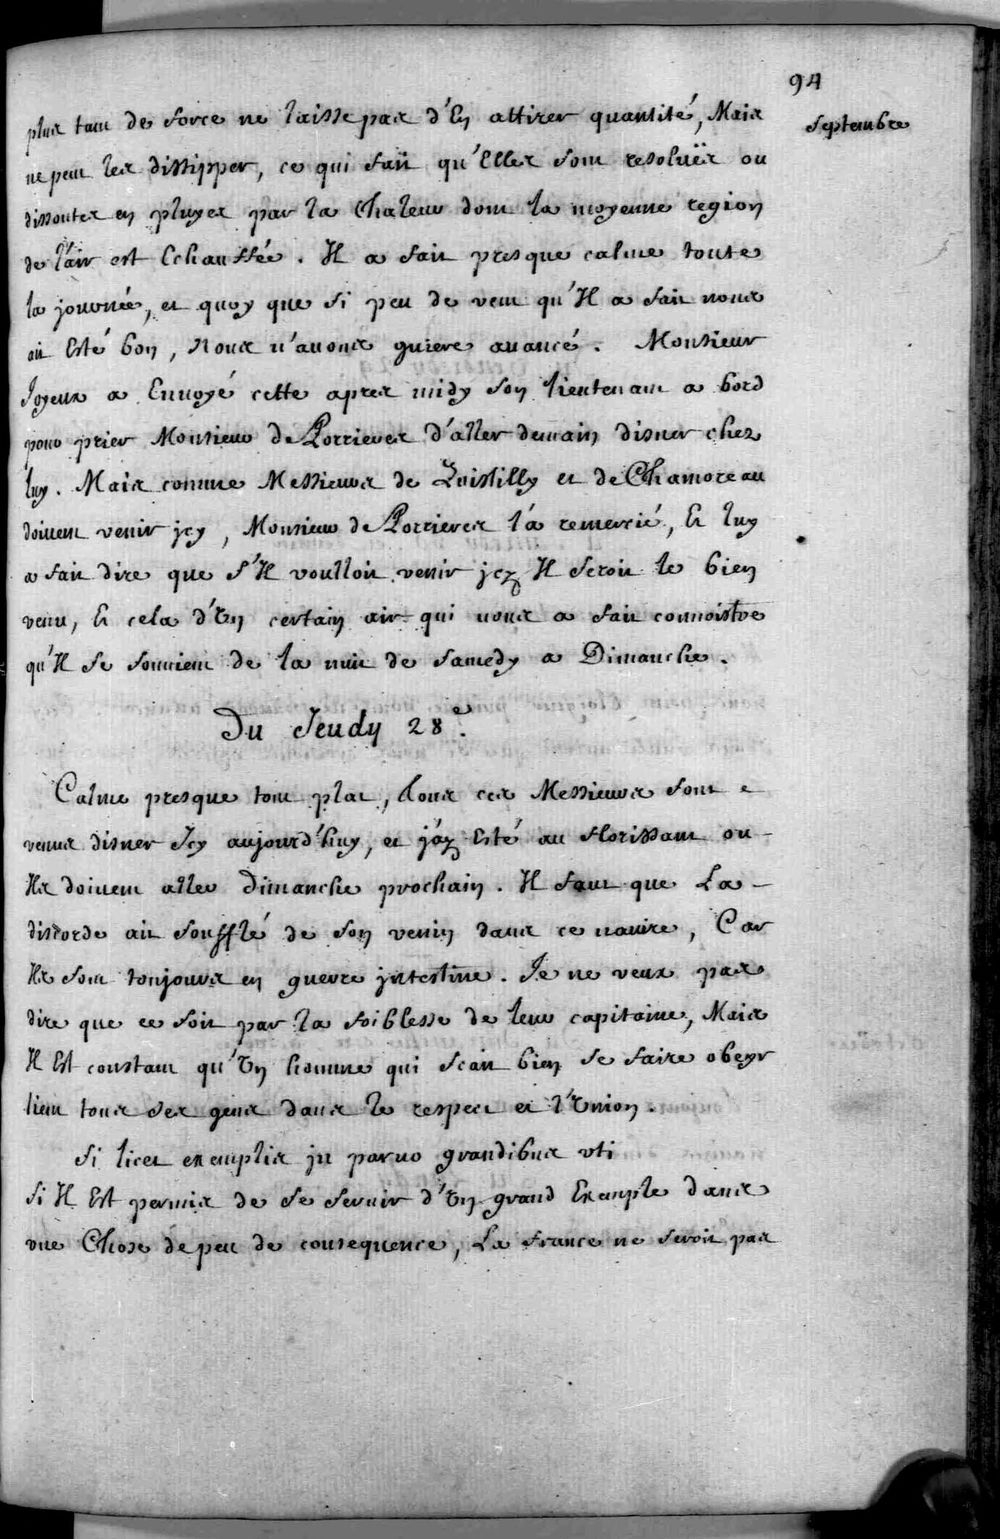 94
Septembre
plus tant de force ne laisse pas d'En attirer quantité, Mais
ne peut les dissipper, ce qui fait qu'Elles sont resoluës ou
dissoutes en pluyes par la Chaleur dont la moyenne region
de l'air est Echauffée. Il a fait presque calme toute
la journée, et quoy que si peu de vent qu'Il a fait nous
ait Esté bon, Nous n'auons guiere auancé. Monsieur
Joyeux a Enuoyé cette apres midy son lieutenant a bord
pour prier Monsieur de Porrieres d'aller demain disner chez
luy. Mais comme Messieurs de Quistilly et de Chamoreau
doiuent venir jcy, Monsieur de Porrieres l'a remercié, Et luy
a fait dire que s'Il voulloit venir jcy Il seroit le bien
venu, Et cela d'Vn certain air qui nous a fait connoistre
qu'Il se souuient de la nuit de Samedy a Dimanche.
Du Jeudy 28e.
Calme presque tout plat, tous ces Messieurs sont
venus disner Jcy aujourd'huy, et j'ay Esté au florissant ou
Ils doiuent aller Dimanche prochain. Il faut que La
discorde ait soufflé de son venin dans ce nauire, Car
Ils sont toujours en guerre jntestine. Je ne veux pas
dire que ce soit par la foiblesse de leur capitaine, Mais
Il Est constant qu'Vn homme qui scait bien se faire obeyr
tient tous ses gens dans le respect et l'Vnion.
Si licet exemplis jn paruo grandibus vti
Si Il Est permis de se seruir d'Vn grand Exemple dans
vne Chose de peu de consequence, La france ne seroit pas